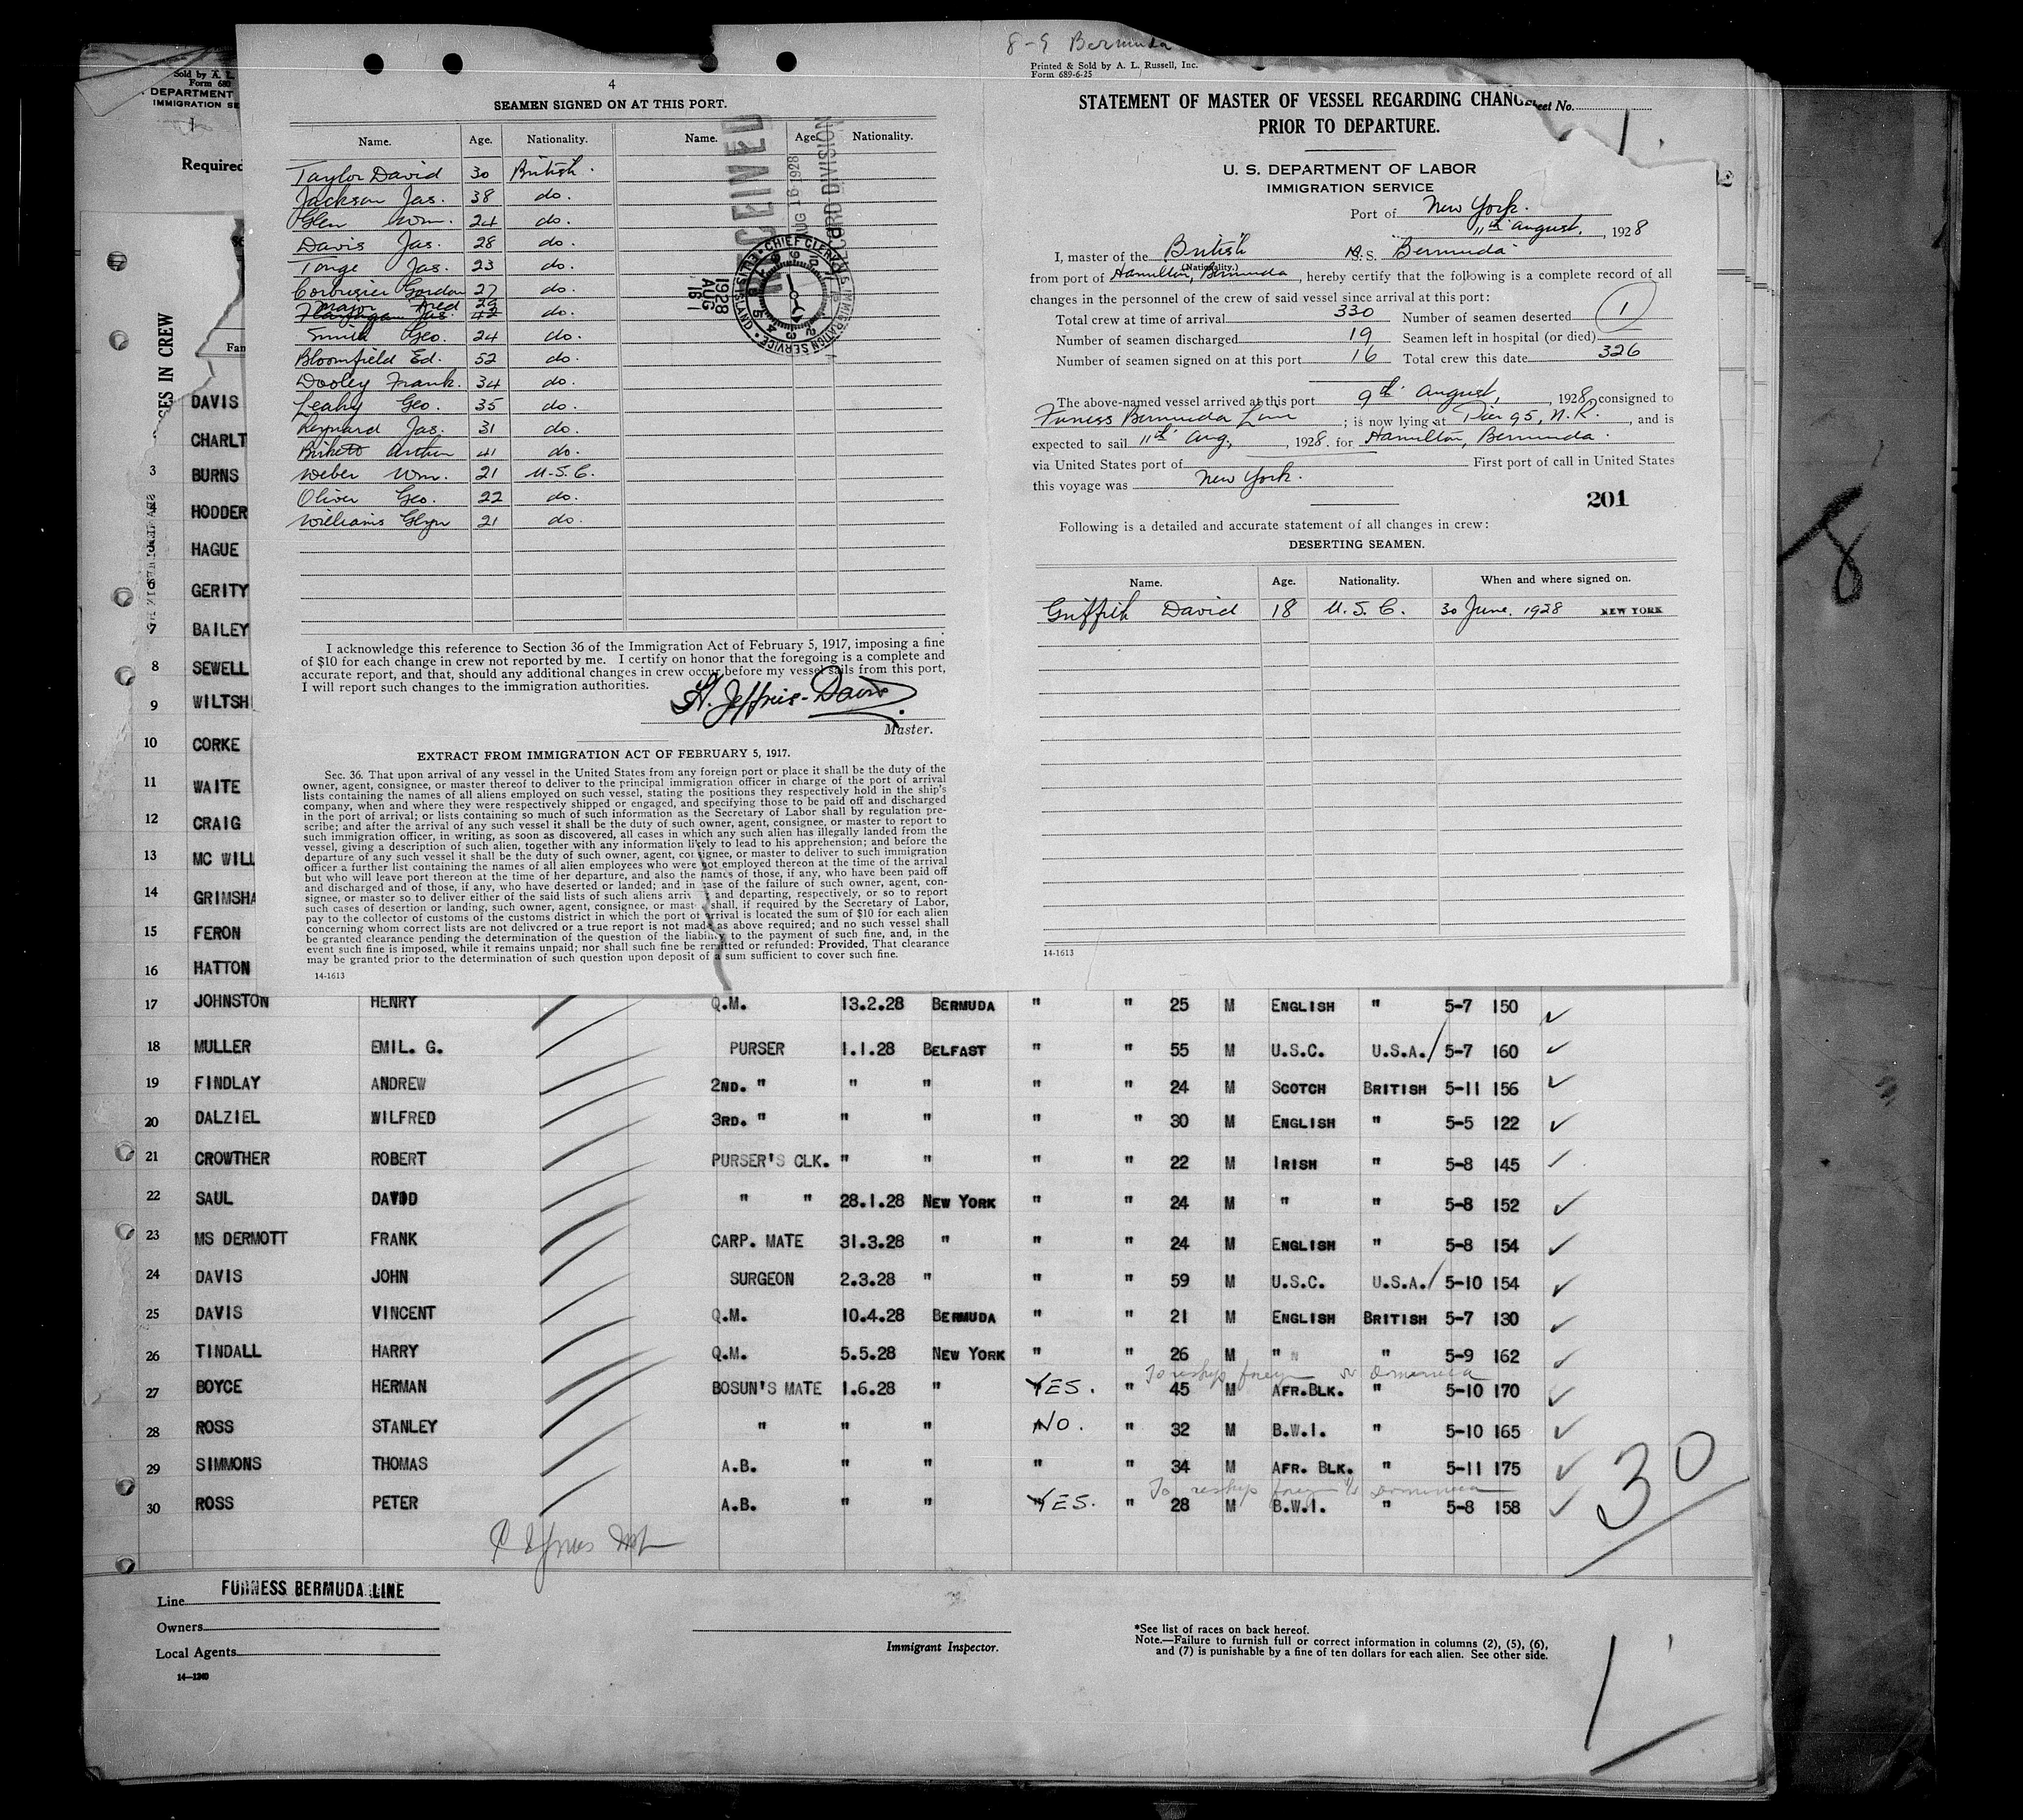 8-9 Bermuda
Sold by A. L.
Form 680
DEPARTMENT
IMMIGRATION SE
Required
ES IN CREW
Fam
4
SEAMEN SIGNED ON AT THIS PORT.
Name. Age. Nationality. Name. Age. Nationality.
Taylor David 30 British.
Jackson Jas. 38 do.
Glen Wm. 24 do.
Davis Jas. 28 do.
Tonge Jas. 23 do.
Corbusier Gordon 27 do.
Major Fred 29 do.
Smith Geo. 24 do.
Bloomfield Ed. 52 do.
Dooley Frank. 34 do.
Leahy Geo. 35 do.
Reynard Jas. 31 do.
Birkett Arthur 41 do.
Weber Wm. 21 U.S.C.
Oliver Geo. 22 do.
Williams Glyn 21 do.
RECEIVED
AUG 16 1928
RECORD DIVISION
1928 AUG 16
CHIEF CLERK
IMMIGRATION SERVICE
ELLIS ISLAND
I acknowledge this reference to Section 36 of the Immigration Act of February 5, 1917, imposing a fine
of $10 for each change in crew not reported by me. I certify on honor that the foregoing is a complete and
accurate report, and that, should any additional changes in crew occur before my vessel sails from this port,
I will report such changes to the immigration authorities.
H. Jeffries-Davis
Master.
EXTRACT FROM IMMIGRATION ACT OF FEBRUARY 5, 1917.
Sec. 36. That upon arrival of any vessel in the United States from any foreign port or place it shall be the duty of the
owner, agent, consignee, or master thereof to deliver to the principal immigration officer in charge of the port of arrival
lists containing the names of all aliens employed on such vessel, stating the positions they respectively hold in the ship's
company, when and where they were respectively shipped or engaged, and specifying those to be paid off and discharged
in the port of arrival; or lists containing so much of such information as the Secretary of Labor shall by regulation pre-
scribe; and after the arrival of any such vessel it shall be the duty of such owner, agent, consignee, or master to report to
such immigration officer, in writing, as soon as discovered, all cases in which any such alien has illegally landed from the
vessel, giving a description of such alien, together with any information likely to lead to his apprehension; and before the
departure of any such vessel it shall be the duty of such owner, agent, consignee, or master to deliver to such immigration
officer a further list containing the names of all alien employees who were not employed thereon at the time of the arrival
but who will leave port thereon at the time of her departure, and also the names of those, if any, who have been paid off
and discharged and of those, if any, who have deserted or landed; and in case of the failure of such owner, agent, con-
signee, or master so to deliver either of the said lists of such aliens arriv and departing, respectively, or so to report
such cases of desertion or landing, such owner, agent, consignee, or mast shall, if required by the Secretary of Labor,
pay to the collector of customs of the customs district in which the port of arrival is located the sum of $10 for each alien
concerning whom correct lists are not delivered or a true report is not made as above required; and no such vessel shall
be granted clearance pending the determination of the question of the liability to the payment of such fine, and, in the
event such fine is imposed, while it remains unpaid; nor shall such fine be remitted or refunded: Provided, That clearance
may be granted prior to the determination of such question upon deposit of a sum sufficient to cover such fine.
14-1613
Printed & Sold by A. L. Russell, Inc.
Form 689-6-25
STATEMENT OF MASTER OF VESSEL REGARDING CHANGE
PRIOR TO DEPARTURE.
eet No.
1.
U. S. DEPARTMENT OF LABOR
IMMIGRATION SERVICE
Port of New York.
11th August, , 1928
I, master of the British S. Bermuda
(Nationality.)
from port of Hamilton, Bermuda, hereby certify that the following is a complete record of all
changes in the personnel of the crew of said vessel since arrival at this port:
Total crew at time of arrival 330 Number of seamen deserted 1
Number of seamen discharged 19 Seamen left in hospital (or died)
Number of seamen signed on at this port 16 Total crew this date 326
The above-named vessel arrived at this port 9th August, , 1928, consigned to
Furness Bermuda Line ; is now lying at Pier 95, N.R. , and is
expected to sail 11th Aug, , 1928. for Hamilton, Bermuda.
via United States port of First port of call in United States
this voyage was New York.
201
Following is a detailed and accurate statement of all changes in crew:
DESERTING SEAMEN.
Name. Age. Nationality. When and where signed on.
Griffith David 18 U.S.C. 30 June, 1928 NEW YORK
14-1613
8
DAVIS
CHARLT
3 BURNS
HODDER
HAGUE
6 GERITY
7 BAILEY
8 SEWELL
9 WILTSH
10 CORKE
11 WAITE
12 CRAIG
13 MC WILL
14 GRIMSHA
15 FERON
16 HATTON
17 JOHNSTON HENRY Q.M. 13.2.28 BERMUDA " " 25 M ENGLISH " 5-7 150
18 MULLER EMIL. G. PURSER 1.1.28 BELFAST " " 55 M U.S.C. U.S.A. 5-7 160
19 FINDLAY ANDREW 2ND. " " " " " 24 M SCOTCH BRITISH 5-11 156
20 DALZIEL WILFRED 3RD. " " " " " 30 M ENGLISH " 5-5 122
21 CROWTHER ROBERT PURSER'S CLK. " " " " 22 M IRISH " 5-8 145
22 SAUL DAVOD " " 28.1.28 NEW YORK " " 24 M " " 5-8 152
23 MS DERMOTT FRANK CARP. MATE 31.3.28 " " " 24 M ENGLISH " 5-8 154
24 DAVIS JOHN SURGEON 2.3.28 " " " 59 M U.S.C. U.S.A. 5-10 154
25 DAVIS VINCENT Q.M. 10.4.28 BERMUDA " " 21 M ENGLISH BRITISH 5-7 130
26 TINDALL HARRY Q.M. 5.5.28 NEW YORK " " 26 M " " 5-9 162
To reship foreign Dominica
27 BOYCE HERMAN BOSUN'S MATE 1.6.28 " YES. " 45 M AFR.BLK. " 5-10 170
28 ROSS STANLEY " " " NO. " 32 M B.W.I. " 5-10 165
29 SIMMONS THOMAS A.B. " " " " 34 M AFR. BLK. " 5-11 175
To reship foreign Dominica
30 ROSS PETER A.B. " " YES. " 28 M B.W.I. " 5-8 158
30
Line FURNESS BERMUDA LINE
Owners
Local Agents
14-1240
Immigrant Inspector.
*See list of races on back hereof.
Note.—Failure to furnish full or correct information in columns (2), (5), (6),
and (7) is punishable by a fine of ten dollars for each alien. See other side.
1